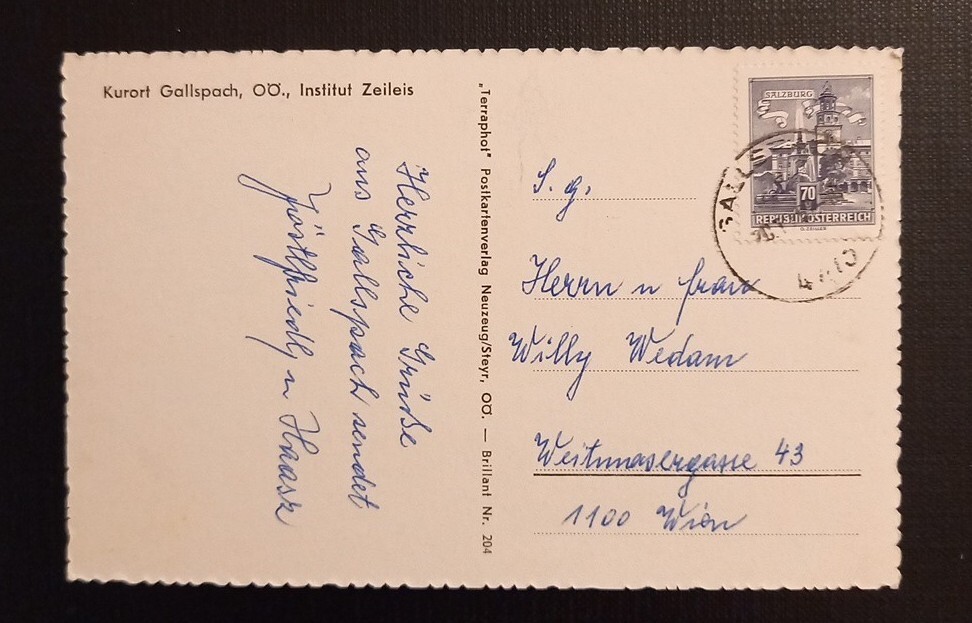 Kurort Gallspach, OÖ., Institut Zeileis
Herzliche Grüße
aus Gallspach sendet
u Haasz
„Terraphot" Postkartenverlag Neuzeug/Steyr, OÖ. — Brillant Nr. 204
SALZBURG
70
REPUBLIK ÖSTERREICH
S. g.
Herrn u Frau
Willy Wedam
Weitmosergasse 43
1100 Wien